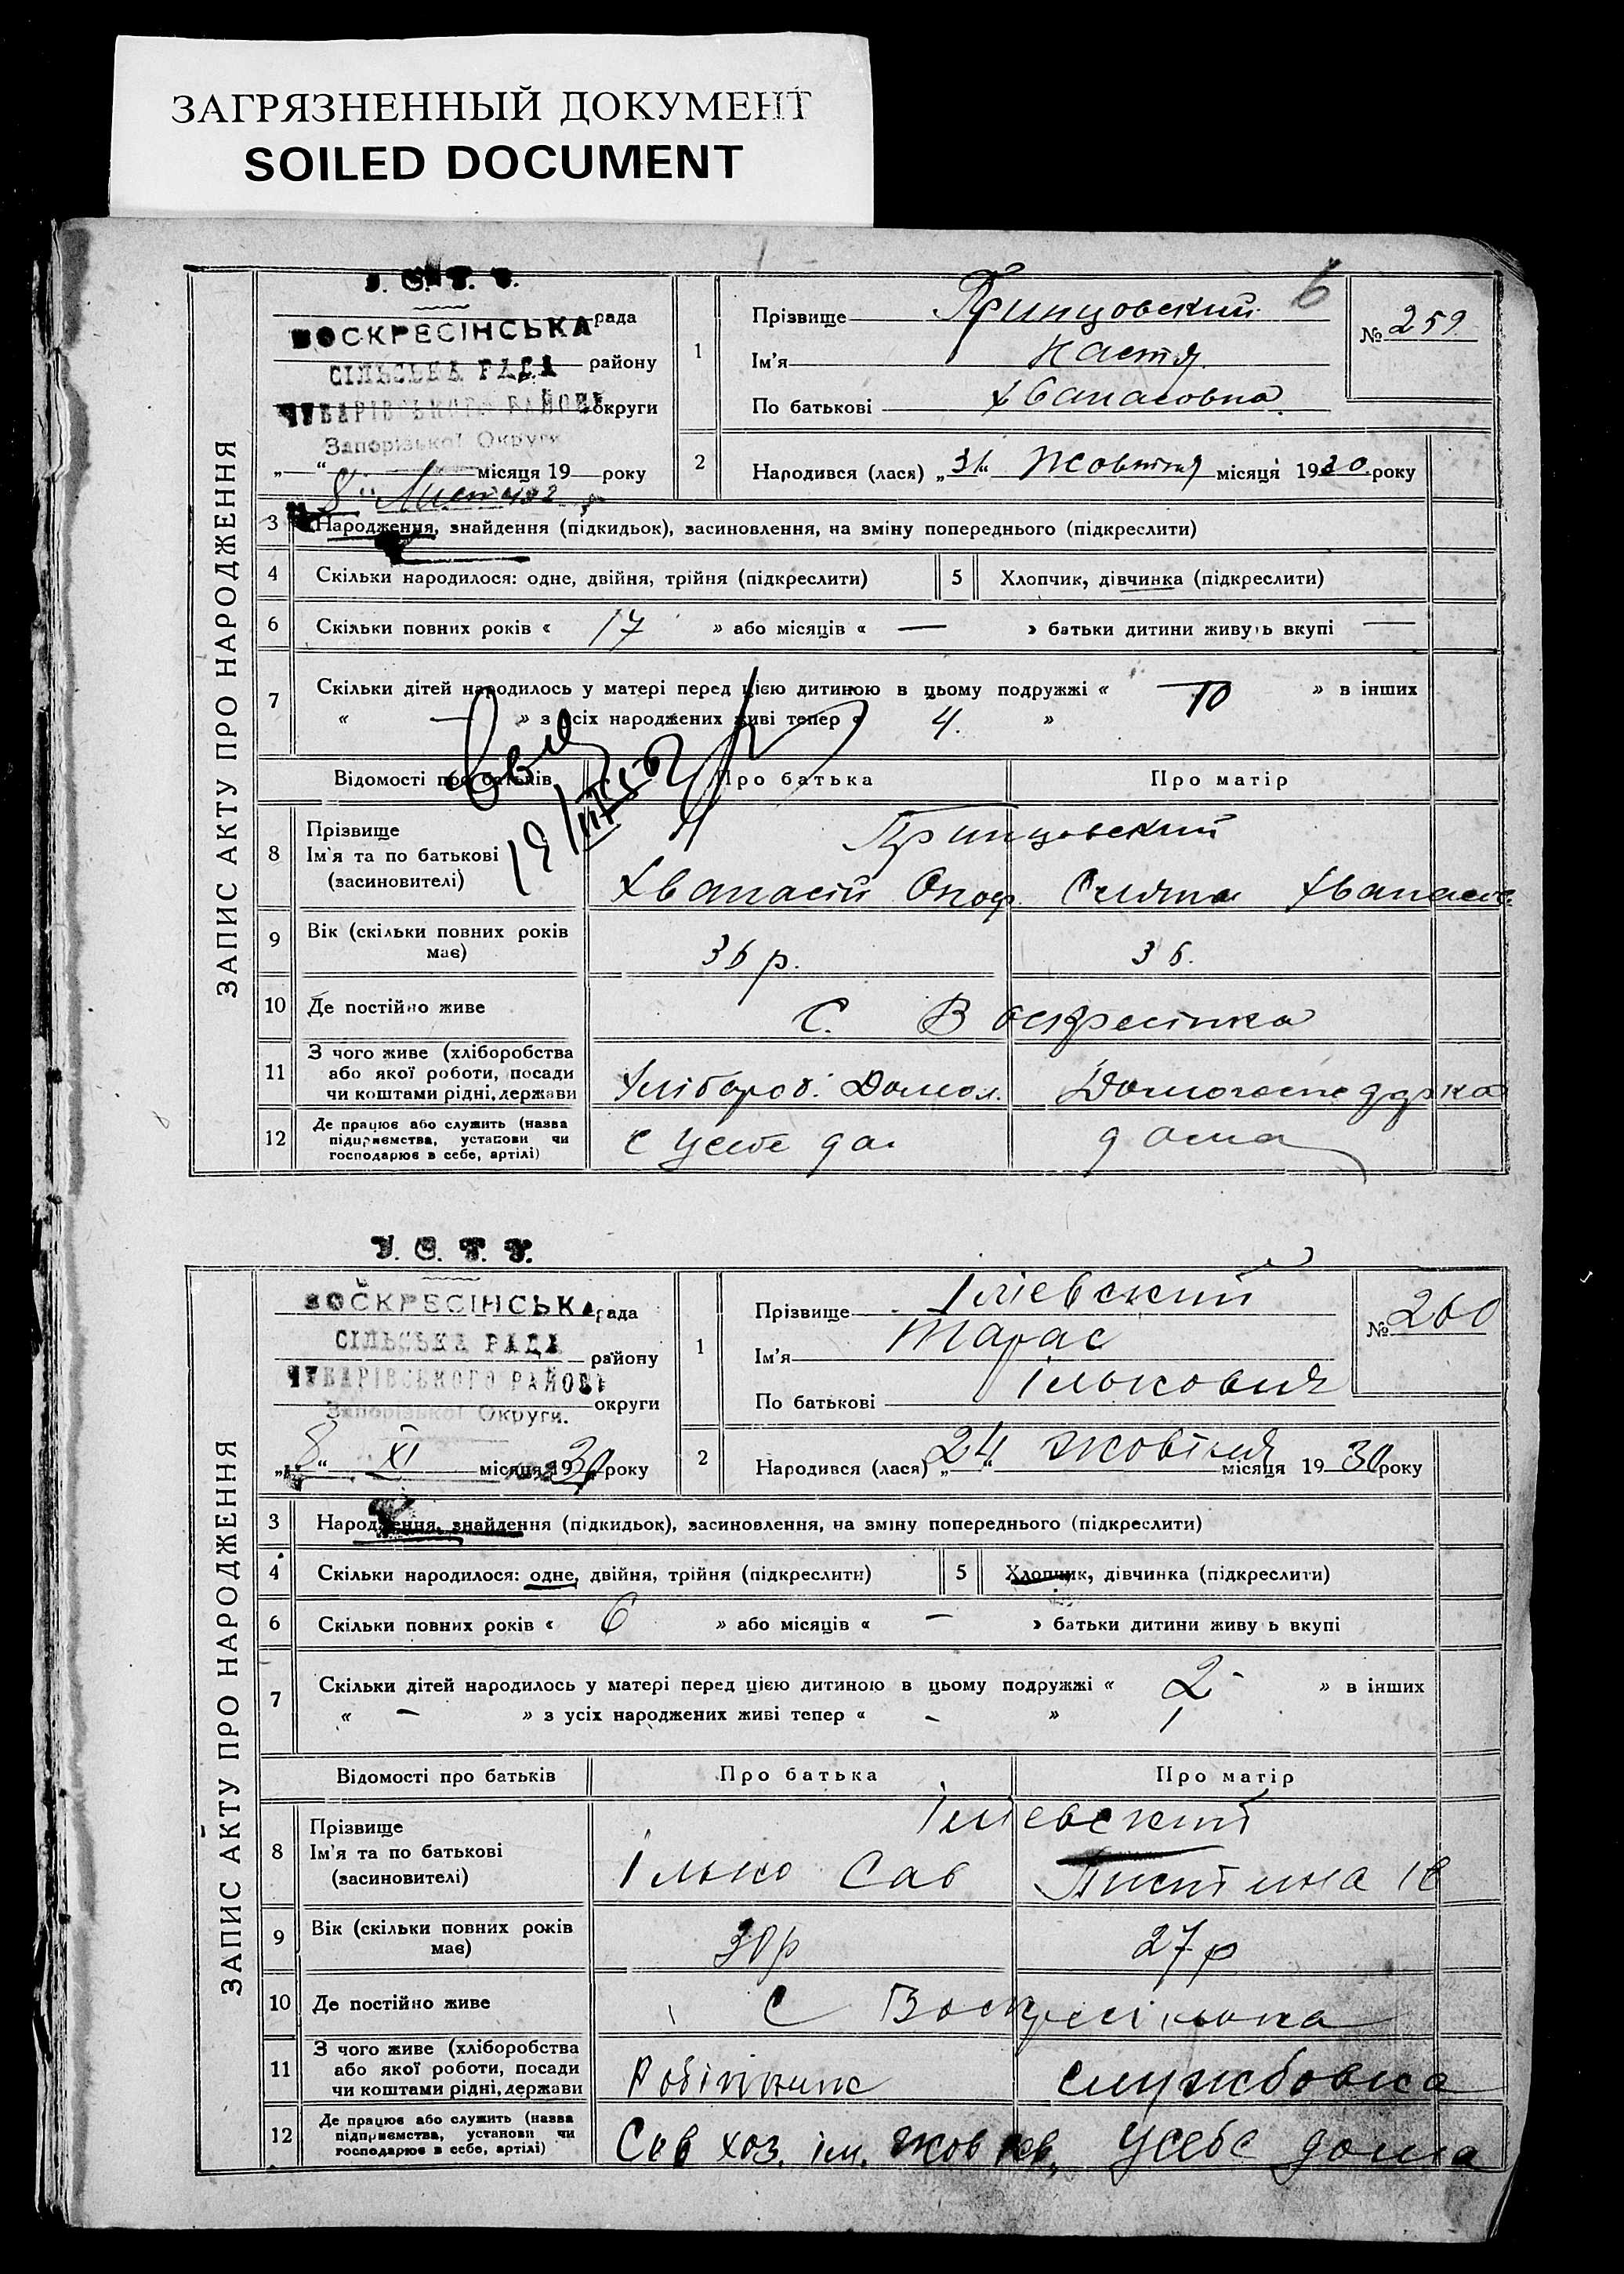 ЗАГРЯЗНЕННЫЙ ДОКУМЕНТ
SOILED DOCUMENT
ЗАПИС АКТУ ПРО НАРОДЖЕННЯ
У. С. Р. Р.
ВОСКРЕСІНСЬКА рада
СІЛЬСЬКА РАДА району
ЧУБАРІВСЬКОГО РАЙОНУ округи
Запорізької Округи
„ “ місяця 19 року
8
6
1 Прізвище Принцовский
Ім'я Настя
По батькові Хванасовна
№ 259
2 Народився (лася) „31“ Жовтня місяця 1930 року
3 Народження, знайдення (підкидьок), засиновлення, на зміну попереднього (підкреслити)
4 Скільки народилося: одне, двійня, трійня (підкреслити) 5 Хлопчик, дівчинка (підкреслити)
6 Скільки повних років « 17 » або місяців « — » батьки дитини живуть вкупі —
7 Скільки дітей народилось у матері перед цією дитиною в цьому подружжі « 10 » в інших
« — » з усіх народжених живі тепер « 4. »
Відомості про батьків Про батька Про матір
8 Прізвище
Ім'я та по батькові
(засиновителі)
Принцовский
Хванасій
9 Вік (скільки повних років має) 36 р. 36.
10 Де постійно живе С. Воскресінка
11 З чого живе (хліборобства
або якої роботи, посади
чи коштами рідні, держави
Хлібороб.
12 Де працює або служить (назва
підприємства, установи чи
господарює в себе, артілі)
дома
ЗАПИС АКТУ ПРО НАРОДЖЕННЯ
У. С. Р. Р.
ВОСКРЕСІНСЬКА рада
СІЛЬСЬКА РАДА району
ЧУБАРІВСЬКОГО РАЙОНУ округи
Запорізької Округи.
„8“ XI місяця 1930 року
1 Прізвище Ілієвский
Ім'я Тарас
По батьковіІлькович
№ 260
2 Народився (лася) „24“ Жовтня місяця 1930 року
3 Народження, знайдення (підкидьок), засиновлення, на зміну попереднього (підкреслити)
4 Скільки народилося: одне, двійня, трійня (підкреслити) 5 Хлопчик, дівчинка (підкреслити)
6 Скільки повних років « 6 » або місяців « — » батьки дитини живуть вкупі
7 Скільки дітей народилось у матері перед цією дитиною в цьому подружжі « 2 » в інших
« — » з усіх народжених живі тепер « - » 1
Відомості про батьків Про батька Про матір
8 Прізвище
Ім'я та по батькові
(засиновителі)
Ілієвский
Ілько Сав
9 Вік (скільки повних років має) 30р 27р
10 Де постійно живе С Воскресінка
11 З чого живе (хліборобства
або якої роботи, посади
чи коштами рідні, держави
Робітник службовка
12 Де працює або служить (назва
підприємства, установи чи
господарює в себе, артілі)
Сав хоз. ім. Усебе дома